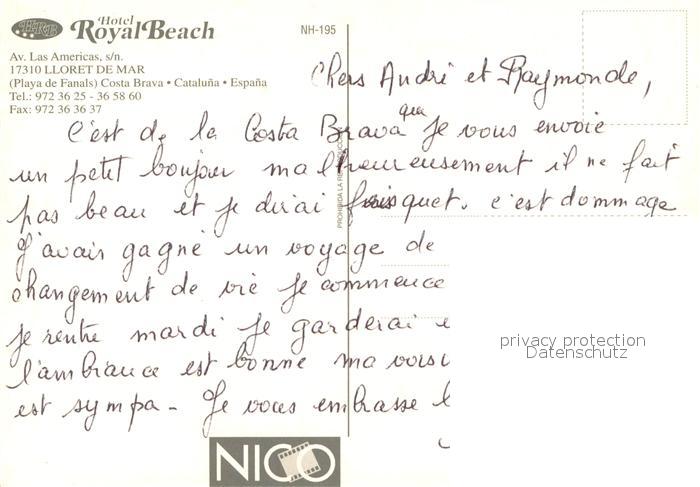 HRB
Hotel
Royal Beach
NH-195
Av. Las Americas, s/n.
17310 LLORET DE MAR
(Playa de Fanals) Costa Brava • Cataluña • España
Tel.: 972 36 25 - 36 58 60
Fax: 972 36 36 37
Chers André et Raymonde,
C'est de la Costa Brava que je vous envoie
un petit bonjour malheureusement il ne fait
pas beau et je dirai frisquet. c'est dommage
J'avais gagné un voyage de
changement de vie je commence
je rentre mardi je garderai
l'ambiance est bonne ma
est sympa - Je vous embrasse
PROHIBIDA LA
privacy protection
Datenschutz
NICO